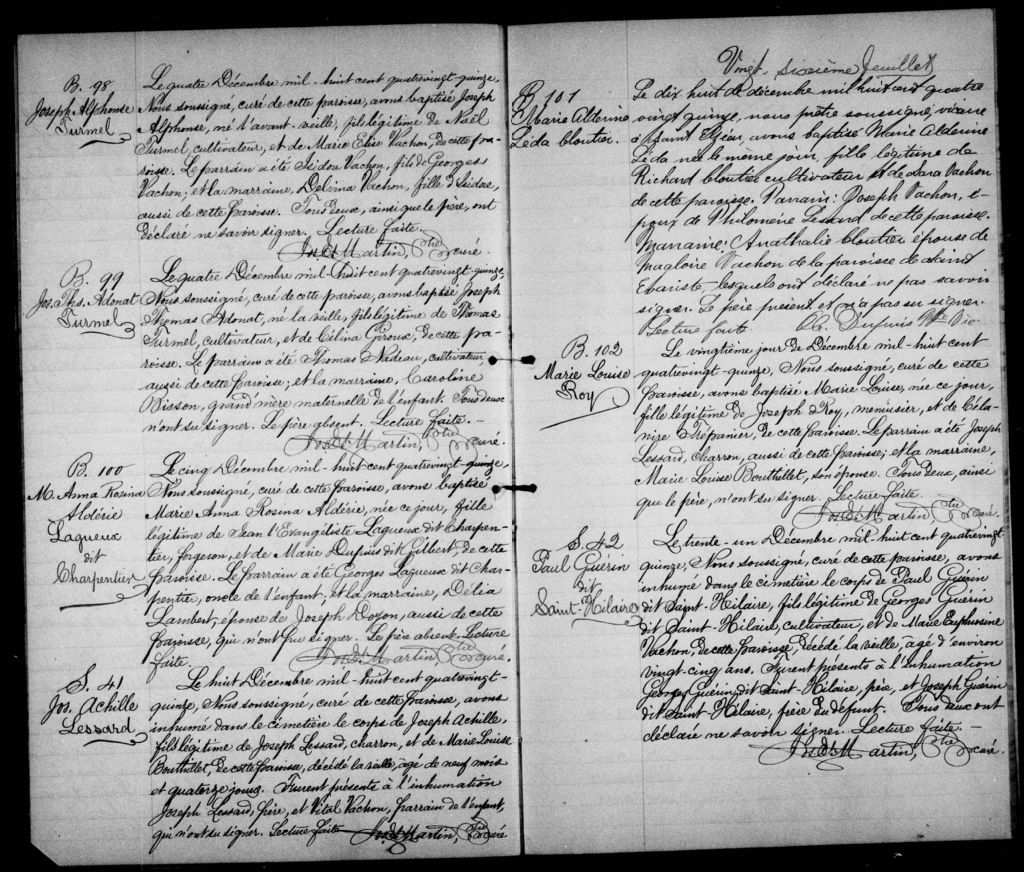 B. 98
Joseph Alphonse
Turmel
Le quatre Décembre mil-huit cent quatrevingt-quinze,
Nous soussigné, curé de cette paroisse, avons baptisé Joseph
Alphonse, né l'avant-veille, fils légitime de Noël
Turmel, cultivateur, et de Marie Elise Vachon, de cette pa-
roisse. Le parrain a été Isidore Vachon, fils de Georges
Vachon; et la marraine, Delvina Vachon, fille d'Isidore,
aussi de cette paroisse. Tous deux, ainsi que le père, ont
déclaré ne savoir signer. Lecture faite.
Martin, Ptre curé.
B. 99
Jos. Ths. Adonat
Turmel
Le quatre Décembre mil-huit cent quatrevingt-quinze,
Nous soussigné, curé de cette paroisse, avons baptisé Joseph
Thomas Adonat, né la veille, fils légitime de Thomas
Turmel, cultivateur, et de Célina Giroux, de cette pa-
roisse. Le parrain a été Thomas Nadeau, cultivateur,
aussi de cette paroisse; et la marraine, Caroline
Bisson, grand'mère maternelle de l'enfant. Tous deux
n'ont su signer. Le père absent. Lecture faite.-
Martin, Ptre curé.
B. 100
M. Anna Rosina
Aldérie
Lagueux
dit
Charpentier
Le cinq Décembre mil-huit cent quatrevingt-quinze,
Nous soussigné, curé de cette paroisse, avons baptisé
Marie Anna Rosina Aldérie, née ce jour, fille
légitime de Jean l'Evangéliste Lagueux dit Charpen-
tier, forgeron, et de Marie Dupuis dit Gilbert, de cette
paroisse. Le parrain a été Georges Lagueux dit Char-
pentier, oncle de l'enfant; et la marraine, Délia
Lambert, épouse de Joseph Doyon, aussi de cette
paroisse, qui n'ont pu signer. Le père absent. Lecture
faite.
Martin, Ptre curé.
S. 41
Jos. Achille
Lessard
Le huit Décembre mil-huit cent quatrevingt-
quinze, Nous soussigné, curé de cette paroisse, avons
inhumé dans le cimetière le corps de Joseph Achille,
fils légitime de Joseph Lessard, charron, et de Marie Louise
Bouthillet, de cette paroisse, décédé la veille, âgé de neuf mois
et quatorze jours. Furent présents à l'inhumation
Joseph Lessard, père, et Vital Vachon, parrain de l'enfant,
qui n'ont su signer. Lecture faite Martin, Ptre curé
Vingt-sixième feuillet
B. 101
Marie Alderine
Léda Cloutier.
Le dix huit de décembre mil huit cent quatre
vingt quinze, nous prêtre soussigné, vicaire
avons baptisé Marie Alderine
Léda née le même jour, fille légitime de
Richard Cloutier cultivateur et de Sara Vachon
de cette paroisse. Parrain: Joseph Vachon, é-
poux de Philomène Lessard de cette paroisse.
Marraine: Anathalie Cloutier épouse de
Magloire Vachon de la paroisse de Saint
Evariste - lesquels ont déclaré ne pas savoir
signer. Le père présent et n'a pas su signer.
Lecture faite Dupuis Ptre Vic.
B. 102
Marie Louise
Roy
Le vingtième jour de Décembre mil-huit cent
quatrevingt-quinze, Nous soussigné, curé de cette
paroisse, avons baptisé Marie Louise, née ce jour,
fille légitime de Joseph Roy, menuisier, et de Céla-
nire Trépanier, de cette paroisse. Le parrain a été Joseph
Lessard, charron, aussi de cette paroisse; et la marraine,
Marie Louise Bouthillet, son épouse. Tous deux, ainsi
que le père, n'ont su signer. Lecture faite.
Martin, Ptre curé.
S. 42
Paul Guérin
dit
Saint-Hilaire
Le trente-un Décembre mil-huit cent quatrevingt-
quinze, Nous soussigné, curé de cette paroisse, avons
inhumé dans le cimetière le corps de Paul Guérin
dit Saint-Hilaire, fils légitime de Georges Guérin
dit Saint-Hilaire, cultivateur, et de Marie Euphrosine
Vachon, de cette paroisse, décédé la veille, âgé d'environ
vingt-cinq ans. Furent présents à l'inhumation
Georges Guérin dit Saint-Hilaire, père, et Joseph Guérin
dit Saint-Hilaire, frère du défunt. Tous deux ont
déclaré ne savoir signer. Lecture faite.-
Martin, Ptre curé.